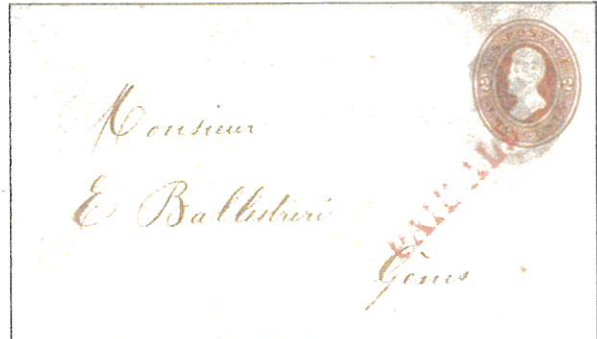 U.S. POSTAGE
Monsieur
E Ballestrieri
PAID ALL
Gènes